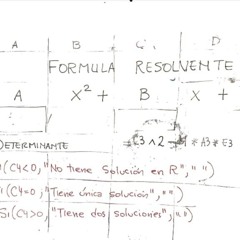 A B C D
FORMULA RESOLVENTE
A X² + B X +
DETERMINANTE =C3^2 * A3 * E3
I(C4<0,"No tiene Solución en R","")
Si(C4=0,"Tiene única solución","")
Si(C4>0,"Tiene dos soluciones","")